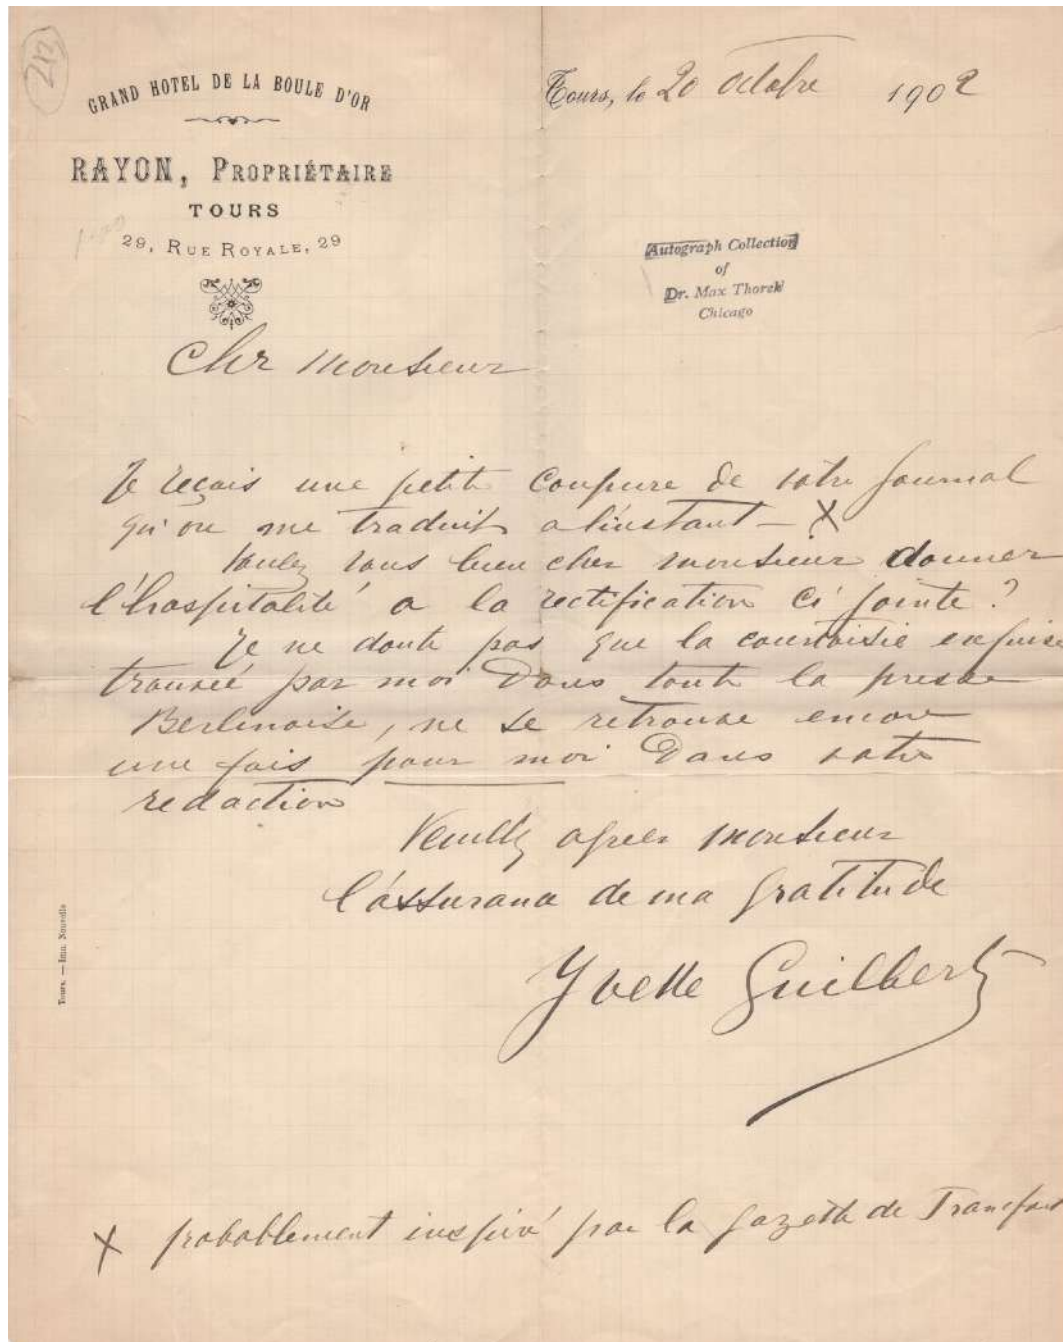 213
GRAND HOTEL DE LA BOULE D'OR
RAYON, PROPRIÉTAIRE
TOURS
29, RUE ROYALE, 29
Tours, le 20 octobre 1902
Autograph Collection
of
Dr. Max Thorek
Chicago
Cher monsieur
Je reçois une petite coupure de votre journal
qu'on me traduit a l'instant – X
Voulez vous bien cher monsieur donner
l'hospitalité a la rectification ci jointe?
Je ne doute pas que la courtoisie exquise
trouvée par moi Dans toute la presse
Berlinoise, ne se retrouve encore
une fois pour moi Dans votre
redaction
Veuillez agréer monsieur
l'assurance de ma gratitude
Yvette Guilbert
X probablement inspiré par la gazette de Francfort
Tours. — Imp. Nouvelle